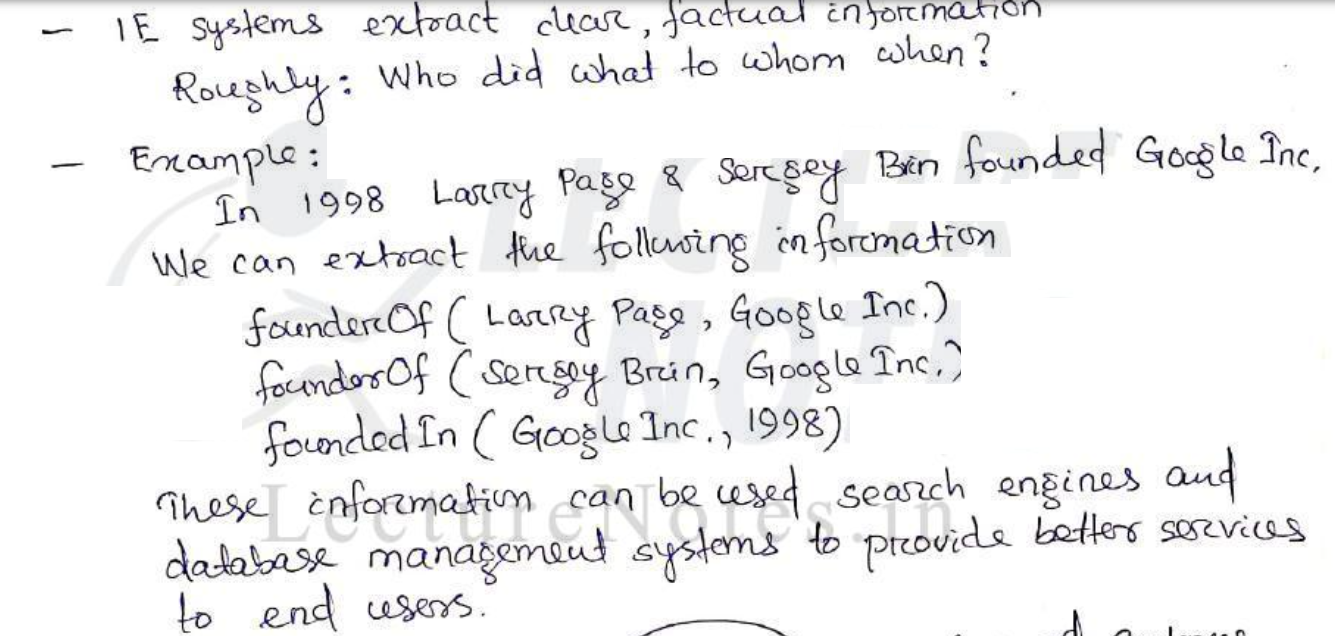 – IE systems extract clear, factual information
Roughly: Who did what to whom when?
– Example:
In 1998 Larry Page & Sergey Brin founded Google Inc.
We can extract the following information
founderOf ( Larry Page, Google Inc.)
founderOf ( Sergey Brin, Google Inc.)
foundedIn ( Google Inc., 1998)
These information can be used search engines and
LectureNotes.in
database management systems to provide better services
to end users.